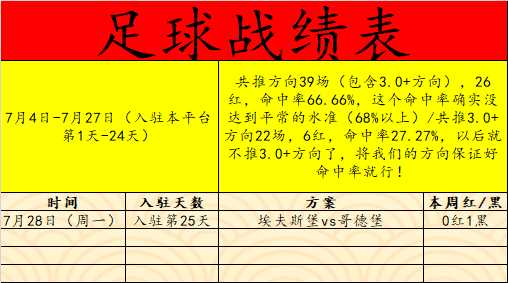 足球战绩表
7月4日-7月27日（入驻本平台
第1天-24天）
共推方向39场（包含3.0+方向），26
红，命中率66.66%，这个命中率确实没
达到平常的水准（68%以上）/共推3.0+
方向22场，6红，命中率27.27%，以后就
不推3.0+方向了，将我们的方向保证好
命中率就行！
时间 入驻天数 方案 本周红/黑
7月28日（周一） 入驻第25天 埃夫斯堡vs哥德堡 0红1黑